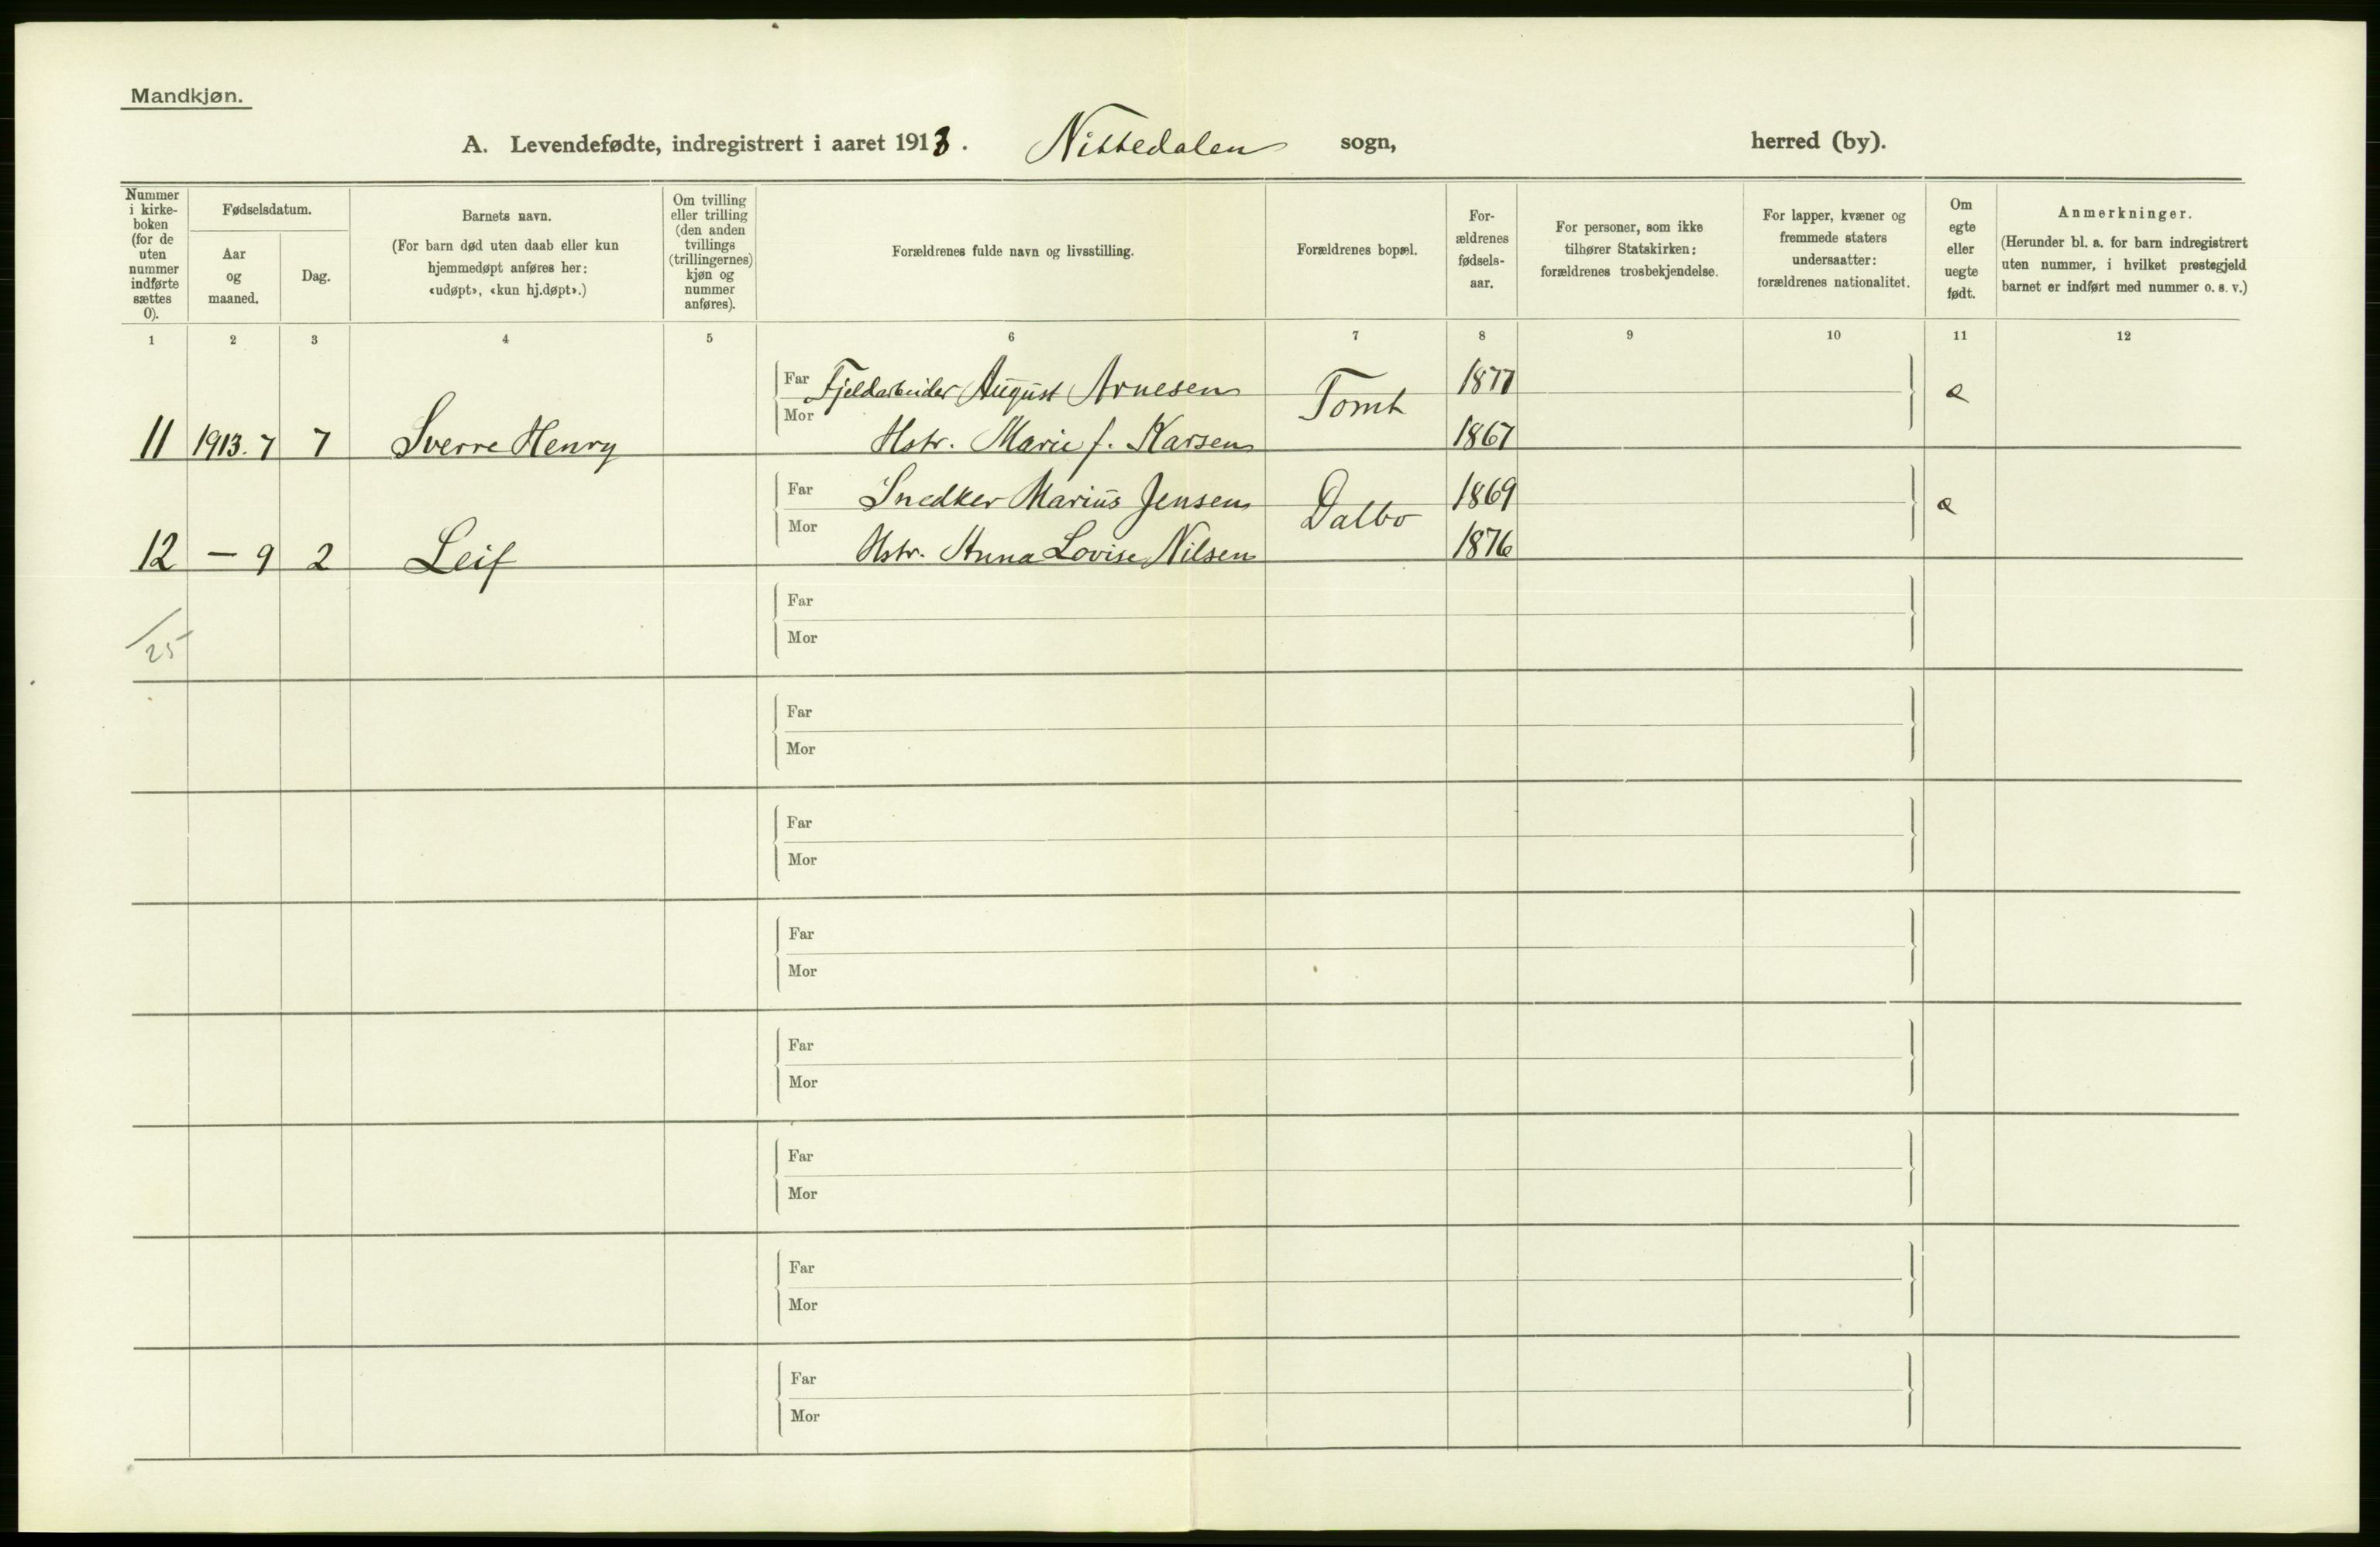 Mandkjøn.
A. Levendefødte, indregistrert i aaret 1913. Nittedalen sogn, herred (by).
Nummer i kirke-boken (for de uten nummer indførte sættes 0).
Fødselsdatum.
Aar og maaned.
Dag.
Barnets navn.
(For barn død uten daab eller kun hjemmedøpt anføres her: «udøpt», «kun hj.døpt».)
Om tvilling eller trilling (den anden tvillings (trillingernes) kjøn og nummer anføres).
Forældrenes fulde navn og livsstilling.
Forældrenes bopæl.
For-ældrenes fødsels-aar.
For personer, som ikke tilhører Statskirken: forældrenes trosbekjendelse.
For lapper, kvæner og fremmede staters undersaatter: forældrenes nationalitet.
Om egte eller uegte født.
Anmerkninger.
(Herunder bl. a. for barn indregistrert uten nummer, i hvilket prestegjeld barnet er indført med nummer o. s. v.)
1 2 3 4 5 6 7 8 9 10 11 12
Far Fjeldarbeider August Arnesen Tomt 1877 e
Mor Hstr. Marie f. Karsen 1867
11 1913. 7 7 Sverre Henry
Far Snedker Marius Jensen Dalbo 1869 e
Mor Hstr. Anna Lovise Nilsen 1876
12 — 9 2 Leif
/25
Far
Mor
Far
Mor
Far
Mor
Far
Mor
Far
Mor
Far
Mor
Far
Mor
Far
Mor